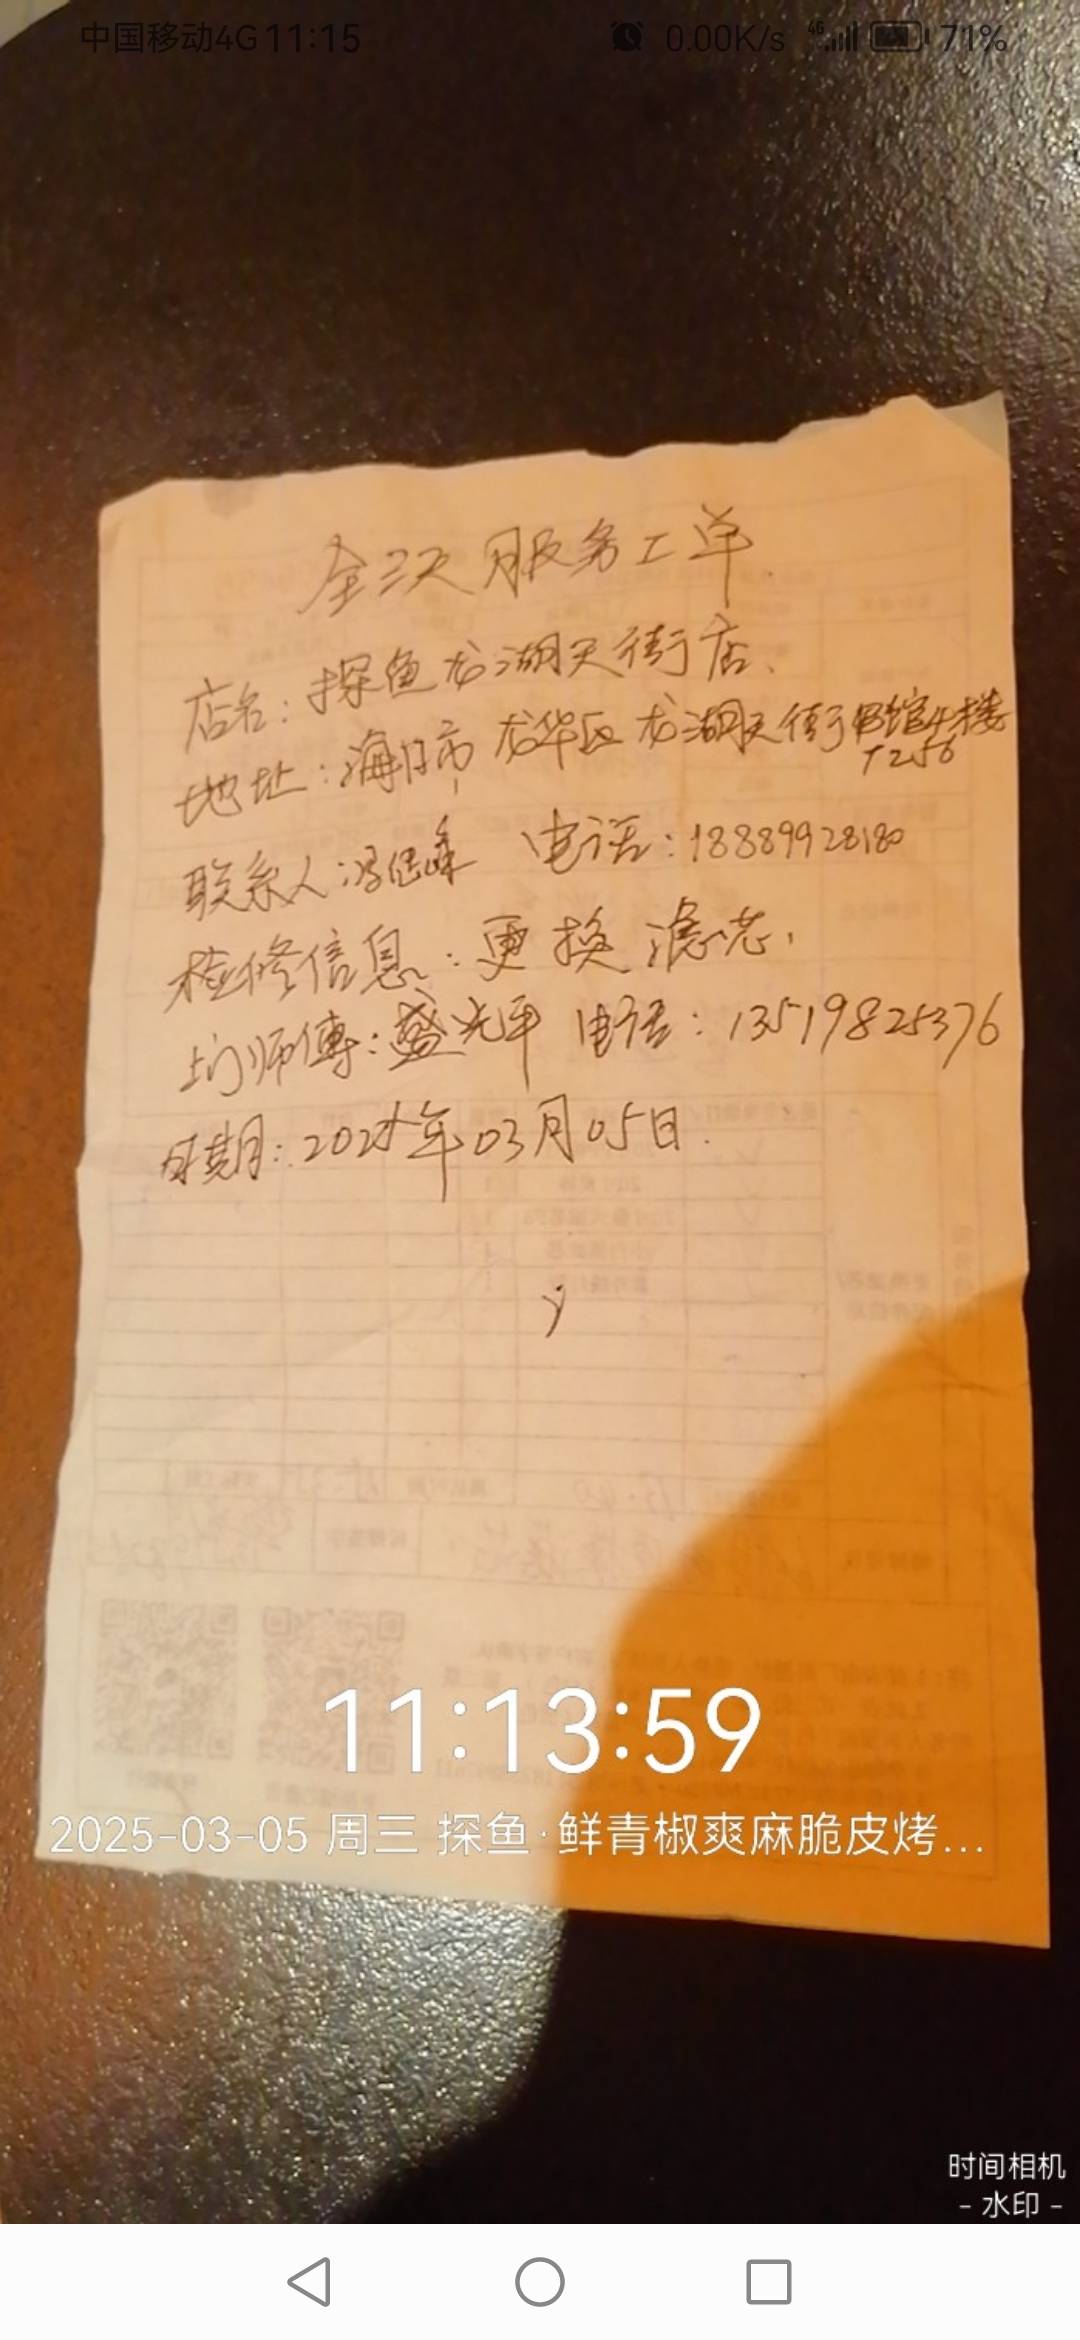 中国移动4G 11:15 0.00K/s 4G 71%
全三天服务工单.
店名:探鱼龙湖天街店、
地址:海口市 龙华区 龙湖天街 4楼
1256
联系人:冯 峰 电话:18889928180
检修信息:更换滤芯,
上门师傅:盛光平 电话:13519825376
日期:2025年03月05日.
11:13:59
2025-03-05 周三 探鱼·鲜青椒爽麻脆皮烤...
时间相机
- 水印 -